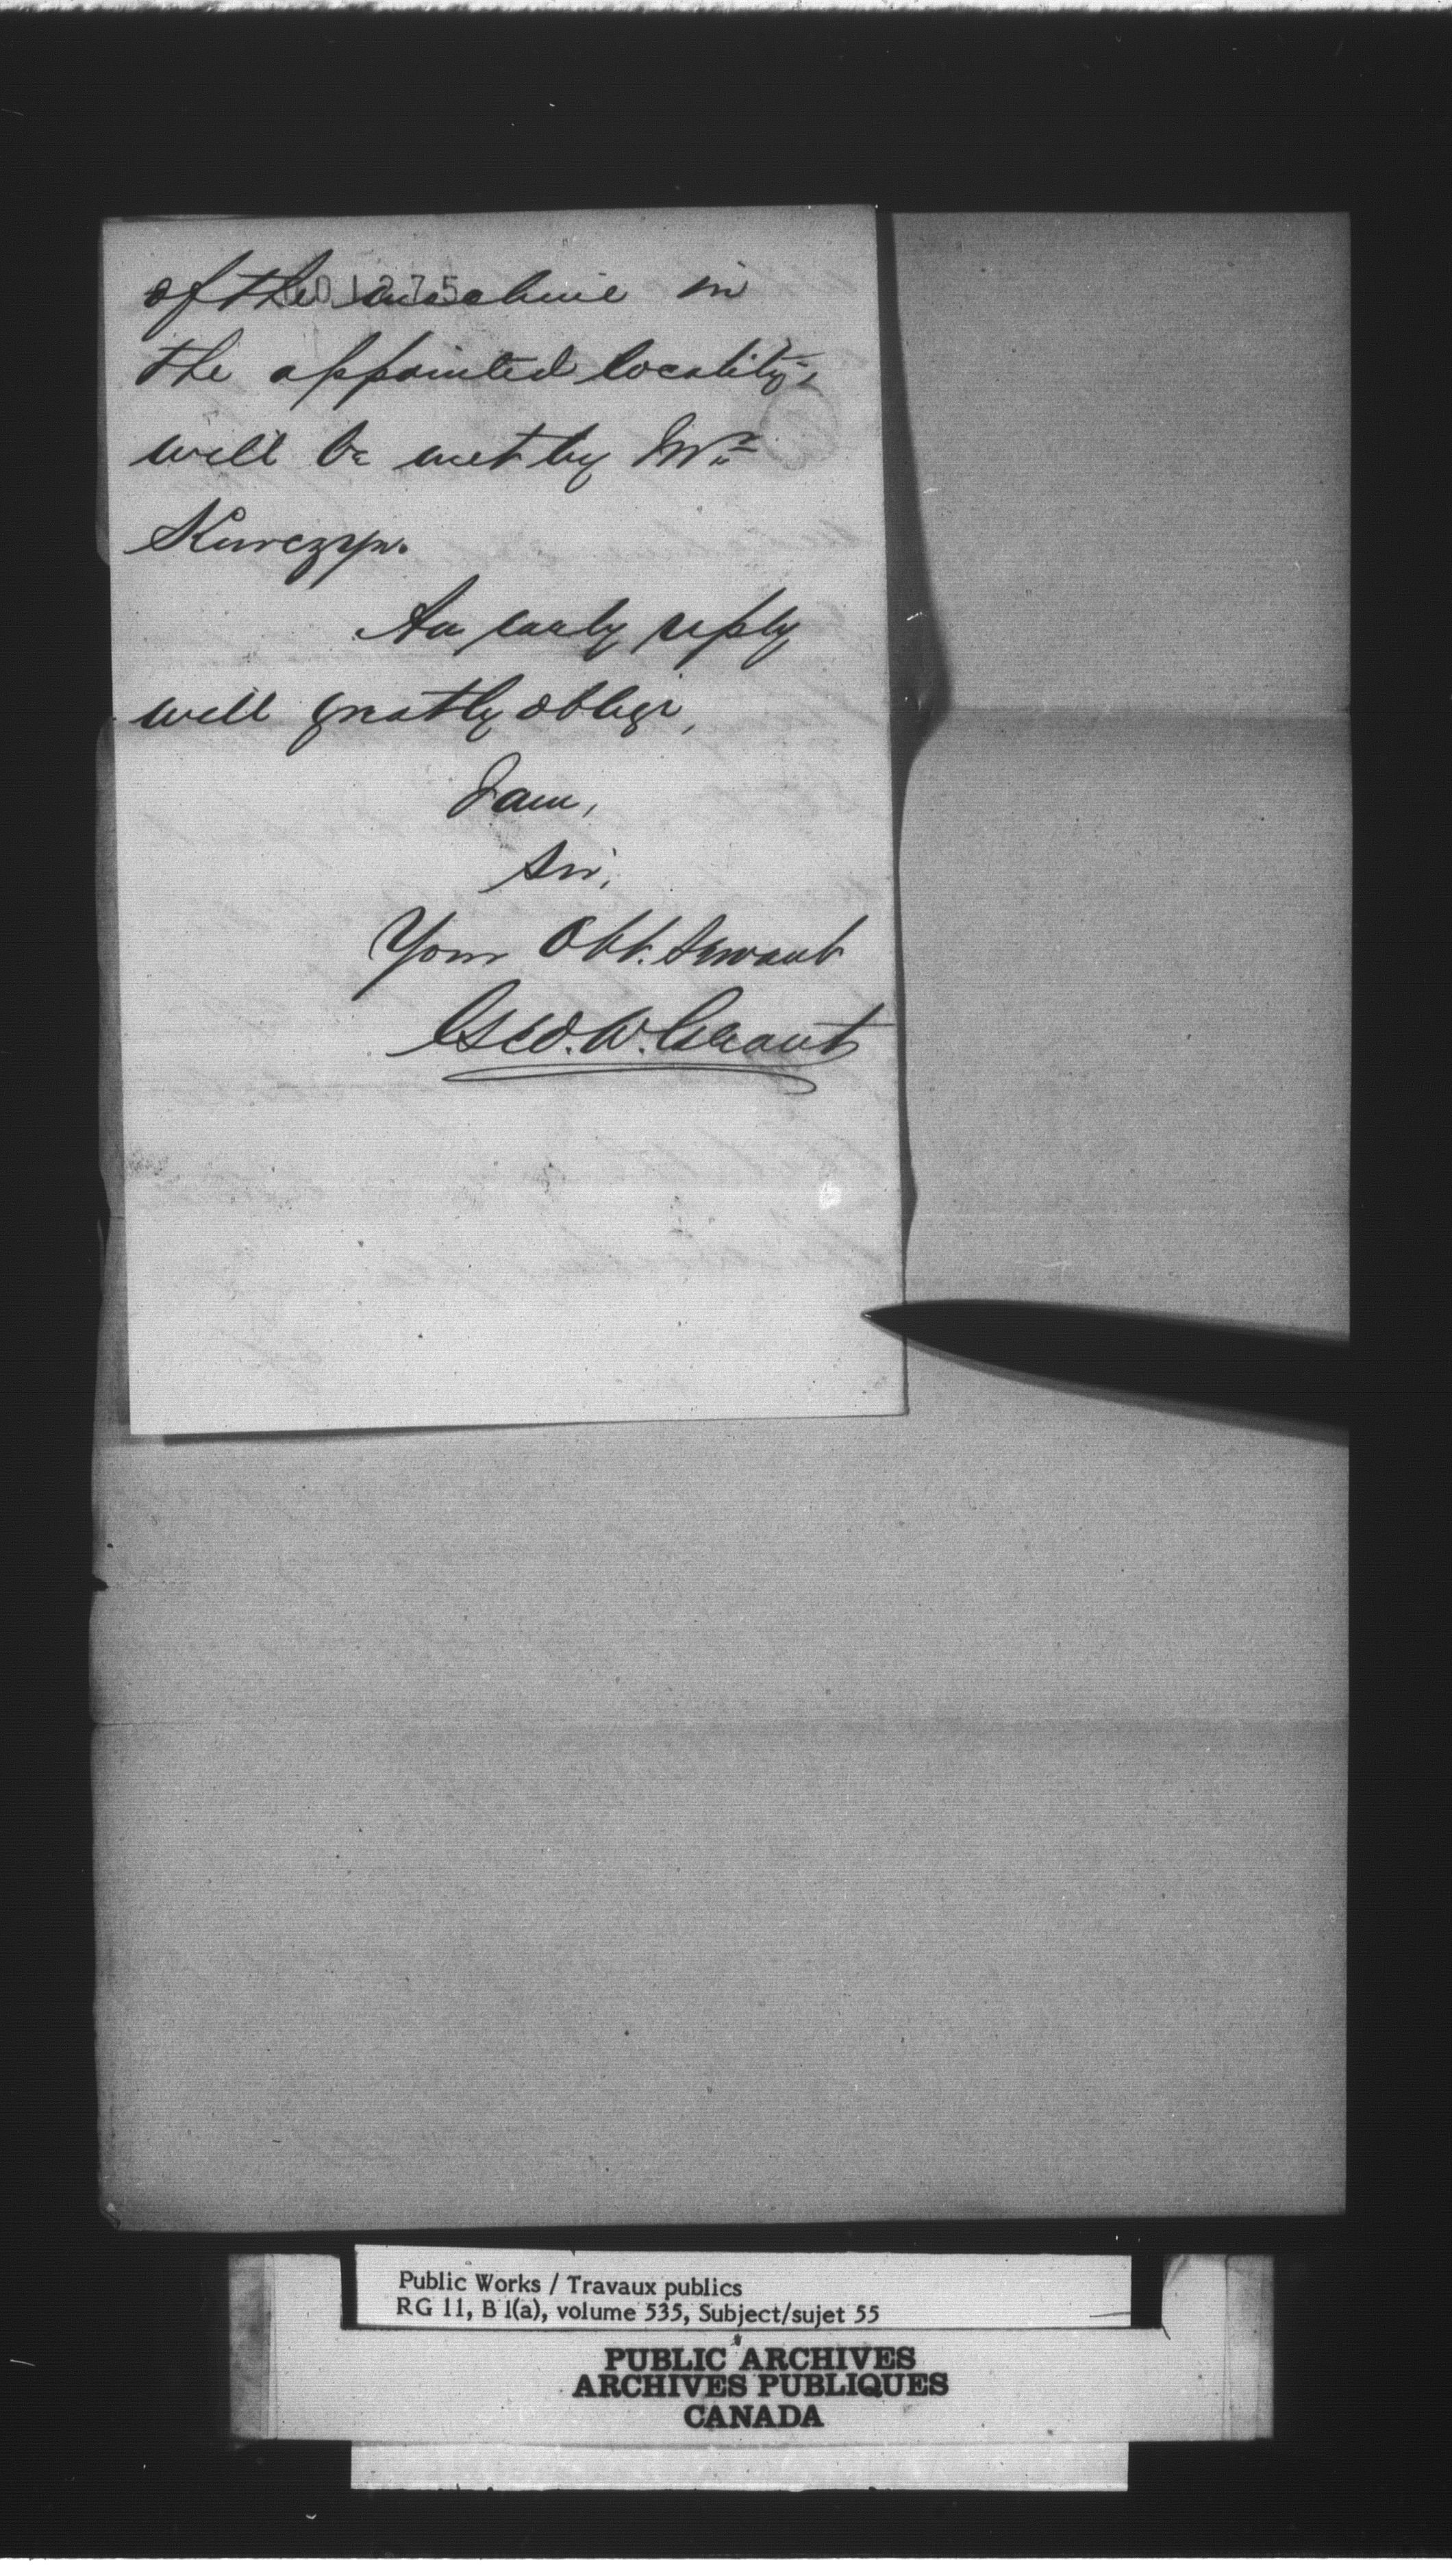 of the machine in
001275
the appointed locality,
will be met by Mr
Kurczyn.
An early reply
will greatly oblige,
I am,
Sir,
Your Obt. Servant
Geo. W. Grant
Public Works / Travaux publics
RG 11, B 1(a), volume 535, Subject/sujet 55
PUBLIC ARCHIVES
ARCHIVES PUBLIQUES
CANADA